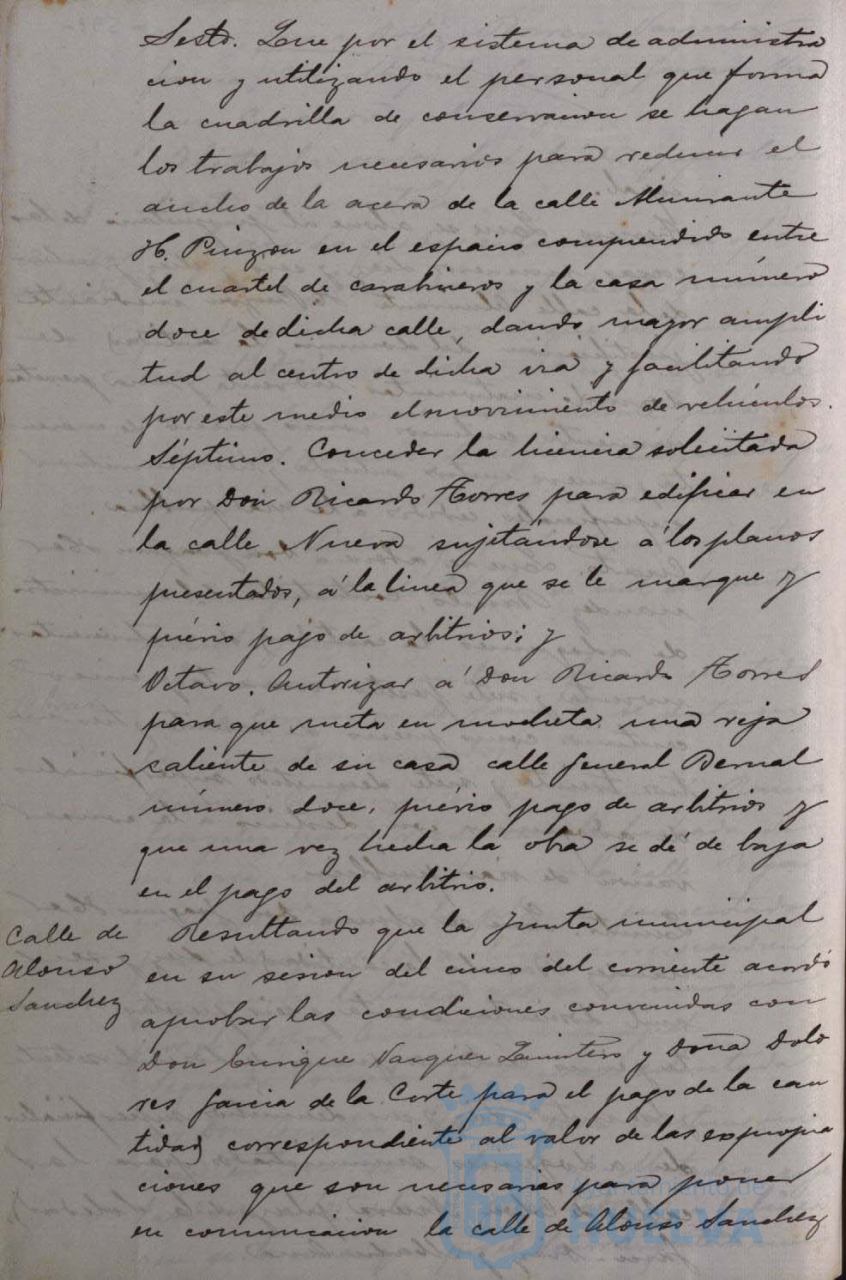 Sesto. Que por el sistema de administra
cion y utilizando el personal que forma
la cuadrilla de conservacion se hagan
los trabajos necesarios para reducir el
ancho de la acera de la calle Almirante
H. Pinzon en el espacio comprendido entre
el cuartel de carabineros y la casa número
doce de dicha calle, dando mayor ampli
tud al centro de dicha via y facilitando
por este medio el movimiento de vehículos.
Séptimo. Conceder la licencia solicitada
por Don Ricardo Torres para edificar en
la calle Nueva sujetándose á los planos
presentados, á la linea que se le marque y
prévio pago de arbitrios; y
Octavo. Autorizar á Don Ricardo Torres
para que meta en mocheta una reja
saliente de su casa calle General Bernal
número doce, prévio pago de arbitrios y
que una vez hecha la obra se dé de baja
en el pago del arbitrio.
Calle de
Alonso
Sanchez
Resultando que la Junta municipal
en su sesion del cinco del corriente acordó
aprobar las condiciones convenidas con
Don Enrique Vazquez Quintero y Doña Dolo
res Garcia de la Corte para el pago de la can
tidad correspondiente al valor de las expropia
ciones que son necesarias para poner
en comunicacion la calle de Alonso Sanchez
Ayuntamiento de
HUELVA